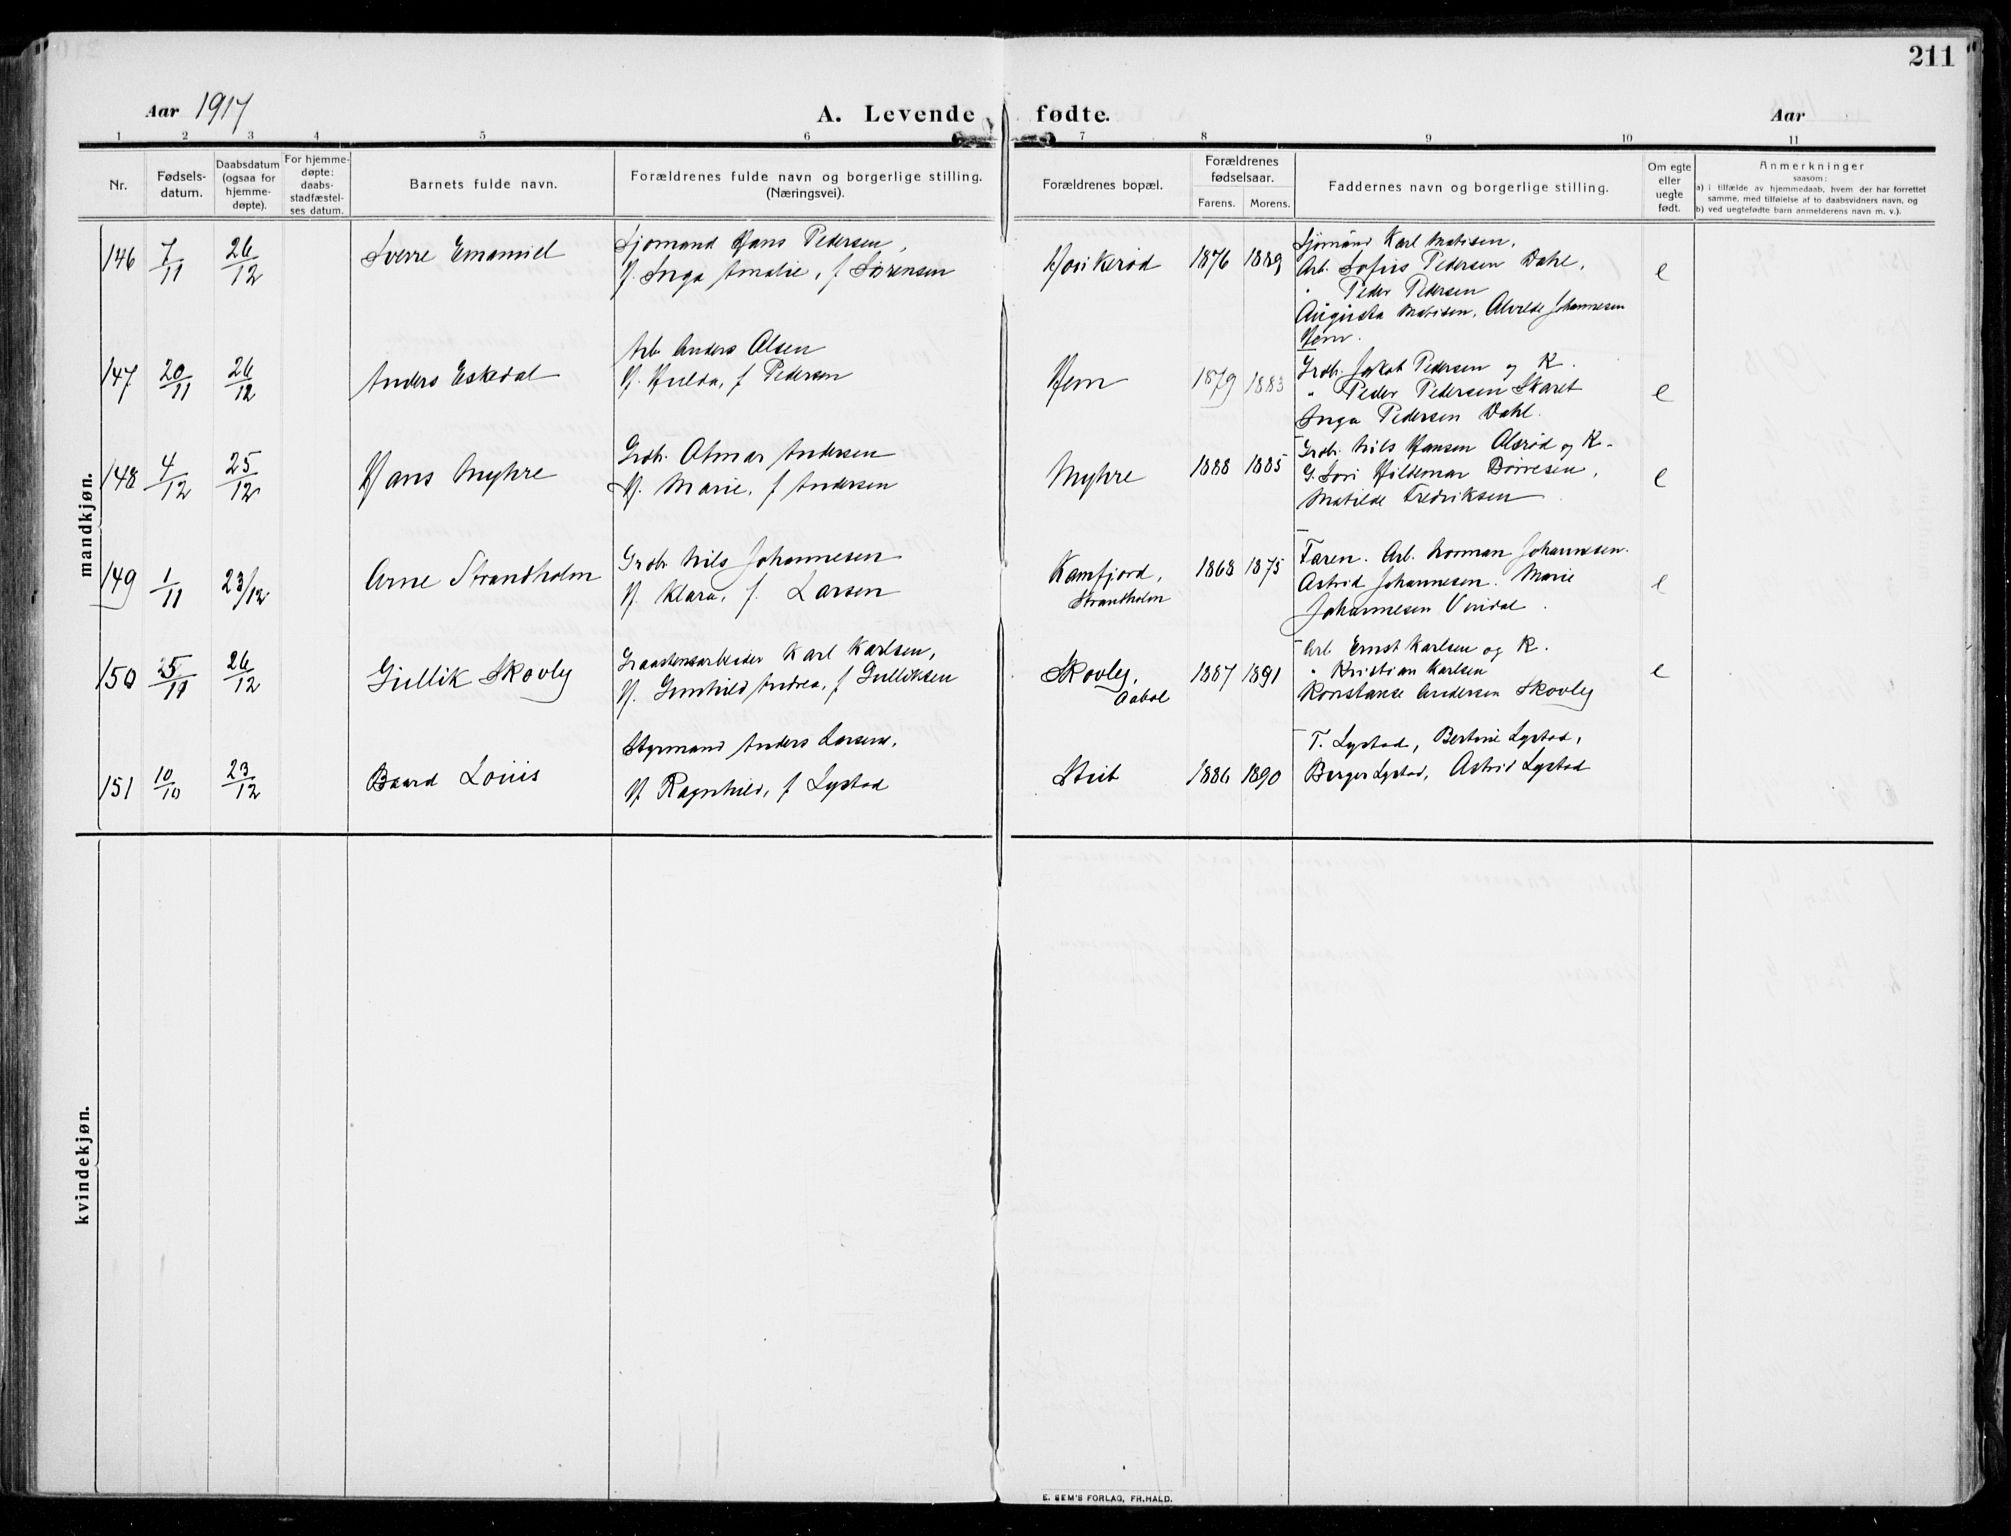 211
Aar 1917 A. Levende fødte. Aar
1 2 3 4 5 6 7 8 9 10 11
Nr. Fødsels-datum. Daabsdatum (ogsaa for hjemme-døpte). For hjemme-døpte: daabs-stadfæstel-ses datum. Barnets fulde navn. Forældrenes fulde navn og borgerlige stilling. (Næringsvei). Forældrenes bopæl. Forældrenes fødselsaar. Farens. Morens. Faddernes navn og borgerlige stilling. Om egte eller uegte født. Anmerkninger saasom: a) i tilfælde av hjemmedaab, hvem der har forrettet samme, med tilføielse af to daabsvidners navn, og b) ved uegtefødte barn anmelderens navn m. v.).
mandkjøn.
146 7/11 26/12 Sverre Emanuel
Sjømand Hans Pedersen,
H. Inga Amalie, f Sørensen
Hovikerød 1876 1889
Sjømand Karl Matisen,
Arb. Sofus Pedersen Dahl,
" Peder Pedersen
Augusta Matisen, Alvilde Johannesen
Hem.
e
147 20/11 26/12 Anders Eskedal
Arb. Anders Olsen
H. Hulda, f Pedersen
Hem 1879 1883
Grdbr. Jakob Pedersen og K.
" Peder Pedersen Skaret
Inga Pedersen Dahl.
e
148 4/12 25/12 Hans Myhre
Grdbr. Otmar Andersen
H. Marie, f Andersen
Myhre 1888 1885
Grdbr. Nils Hansen Olsrød og K.
G. Hildemar Dørresen,
Matilde Fredriksen
e
149 1/11 23/12 Arne Strandholm
Grdbr Nils Johannesen
H. Klara, f. Larsen
Kamfjord,
Strandholm
1868 1875
Faren. Arb. Norman Johannesen.
Astrid Johannesen. Marie
Johannesen Vindal.
e
150 25/11 26/12 Gullik Skovly
Graastensarbeider Karl Karlsen,
H. Gunhild Andrea, f Gulliksen
Skovly,
Aabol
1887 1891
Arb Ernst Karlsen og K.
" Kristian Karlsen
Konstanse Andersen Skovly
e
151 10/10 23/12 Baard Louis
Styrmand Anders Larsen,
H. Ragnhild, f Lystad
Stub 1886 1890
T. Lystad, Bertine Lystad,
Berger Lystad, Astrid Lystad
kvindekjøn.
E. SEM'S FORLAG, FR.HALD.